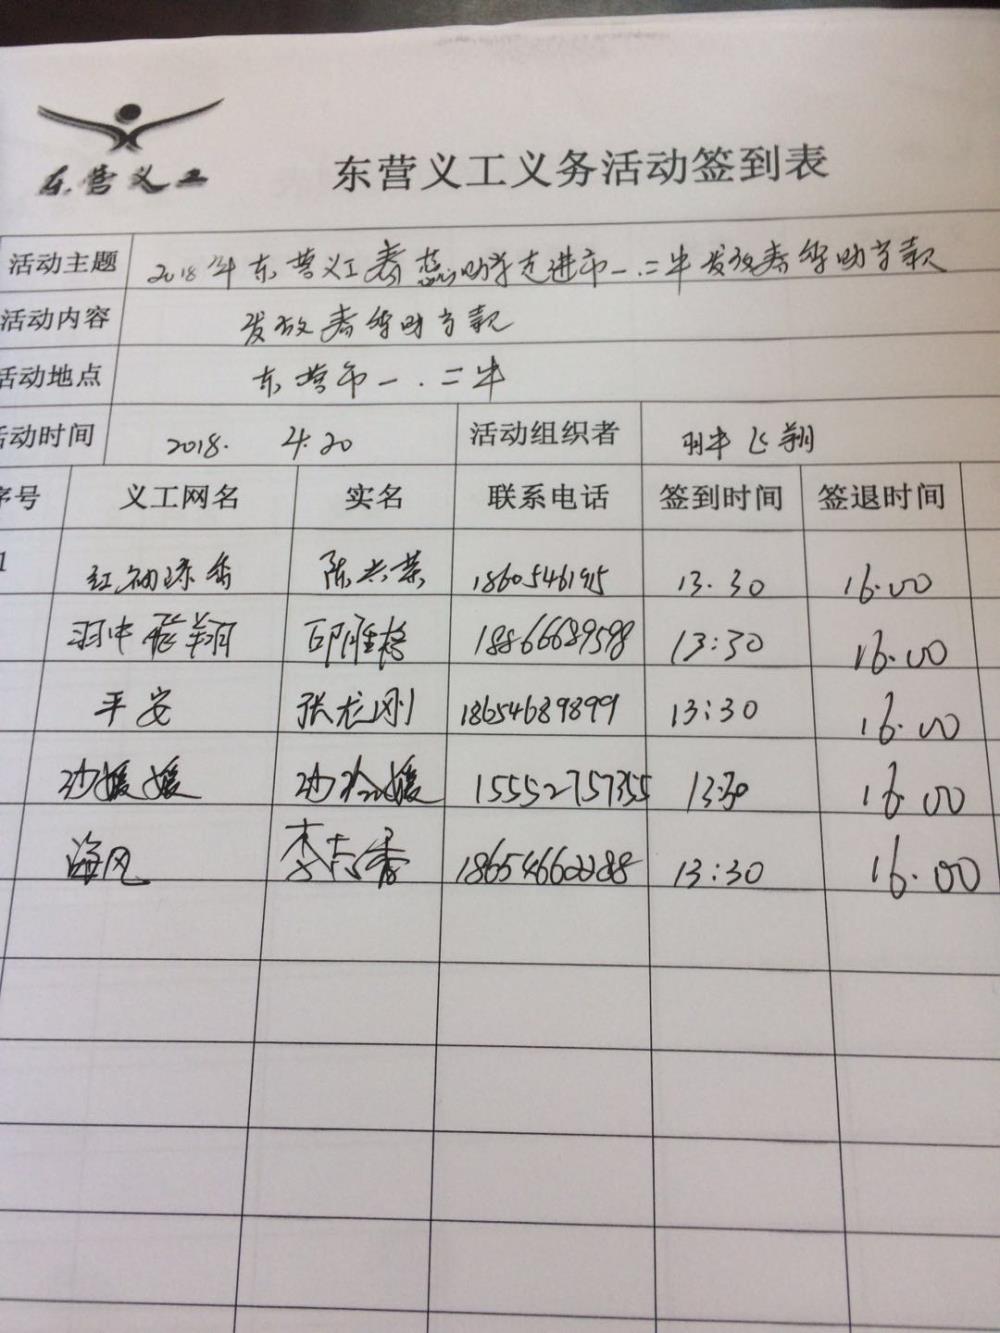 东营义工
东营义工义务活动签到表
活动主题 2018年东营义工春蕊助学走进市一.二中发放春蕾助学款
活动内容 发放春蕾助学款
活动地点 东营市一.二中
活动时间 2018. 4.20 活动组织者 羽中飞翔
序号 义工网名 实名 联系电话 签到时间 签退时间
1 陈兴荣 18605461915 13.30 16.00
羽中飛翔 18866689598 13:30 16.00
平安 张龙刚 18654689899 13:30 16.00
15552757355 13:30 16.00
海风 李志香 13:30 16.00